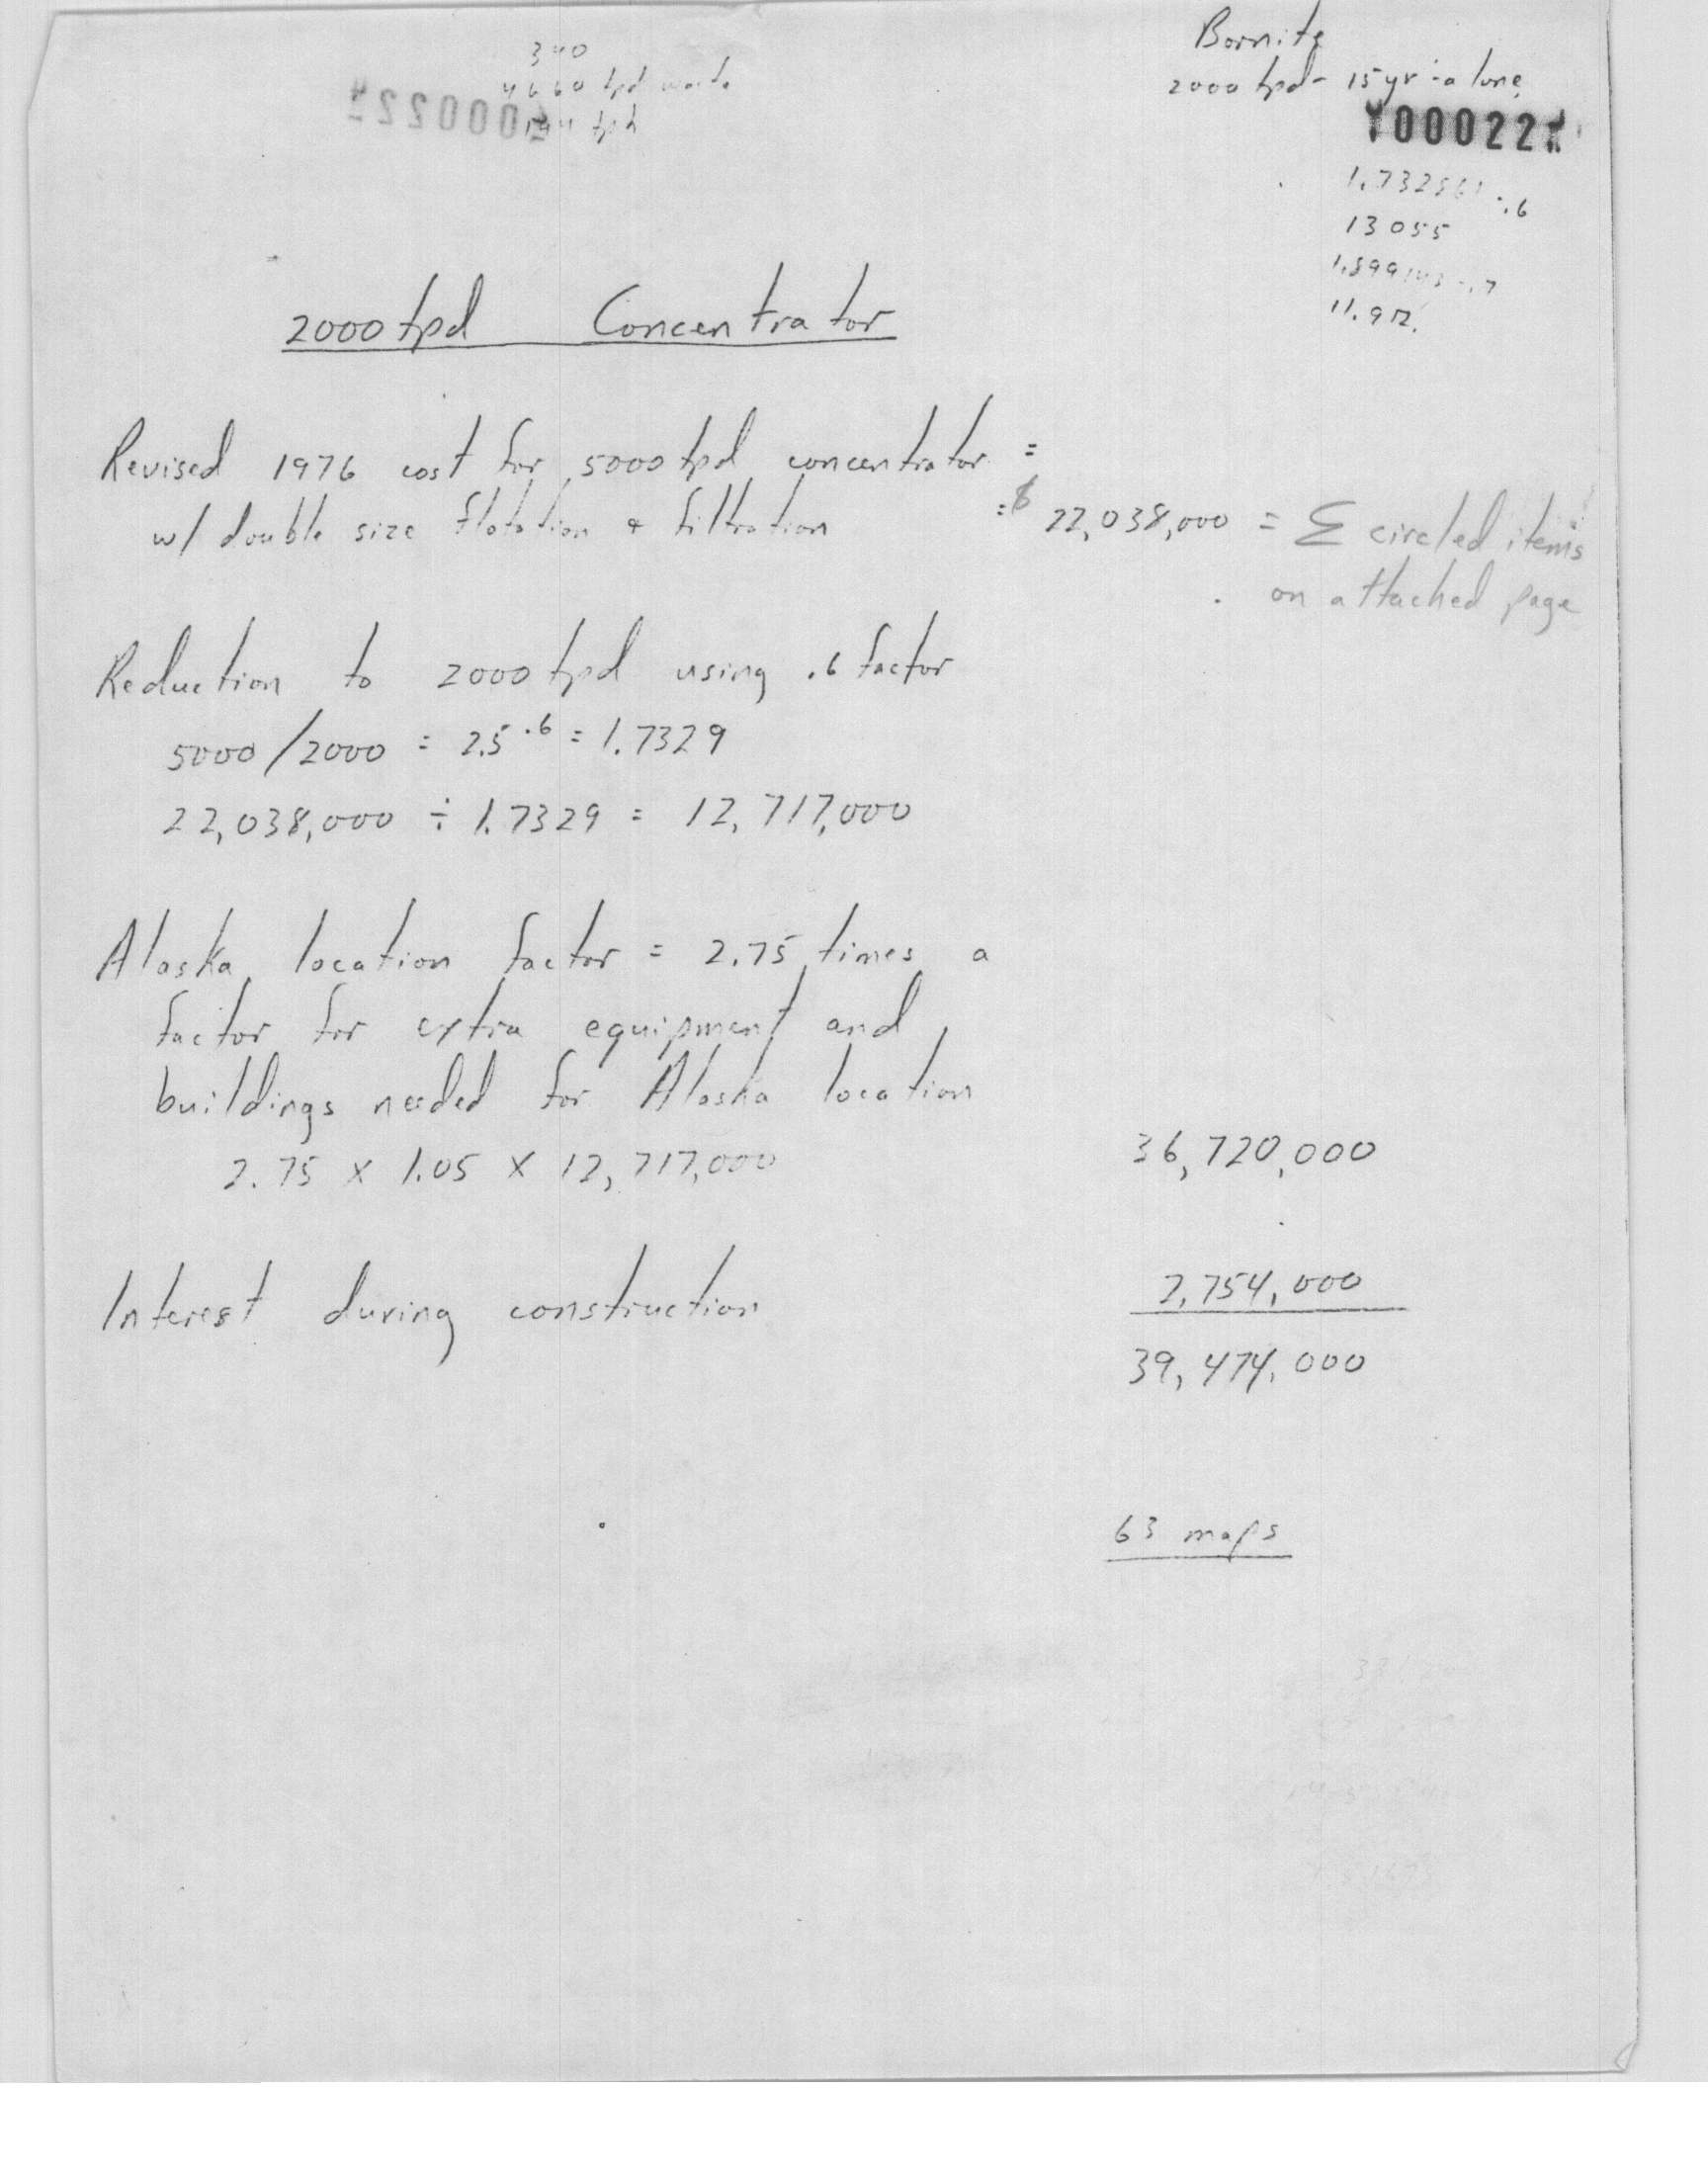 340
Bornite
4660 tpd waste
2000 tpd - 15 yr - alone
194 tph
1.732861 - .6
13055
1.899143 - .7
11.912
2000 tpd Concentrator
Revised 1976 cost for 5000 tpd concentrator =
w/ double size flotation & filtration =$ 22,038,000 = Σ circled items
on attached page
Reduction to 2000 tpd using .6 factor
5000/2000 = 2.5 .6 = 1.7329
22,038,000 ÷ 1.7329 = 12,717,000
Alaska location factor = 2.75 times a
factor for extra equipment and
buildings needed for Alaska location
2.75 x 1.05 x 12,717,000 36,720,000
Interest during construction 2,754,000
39,474,000
63 maps